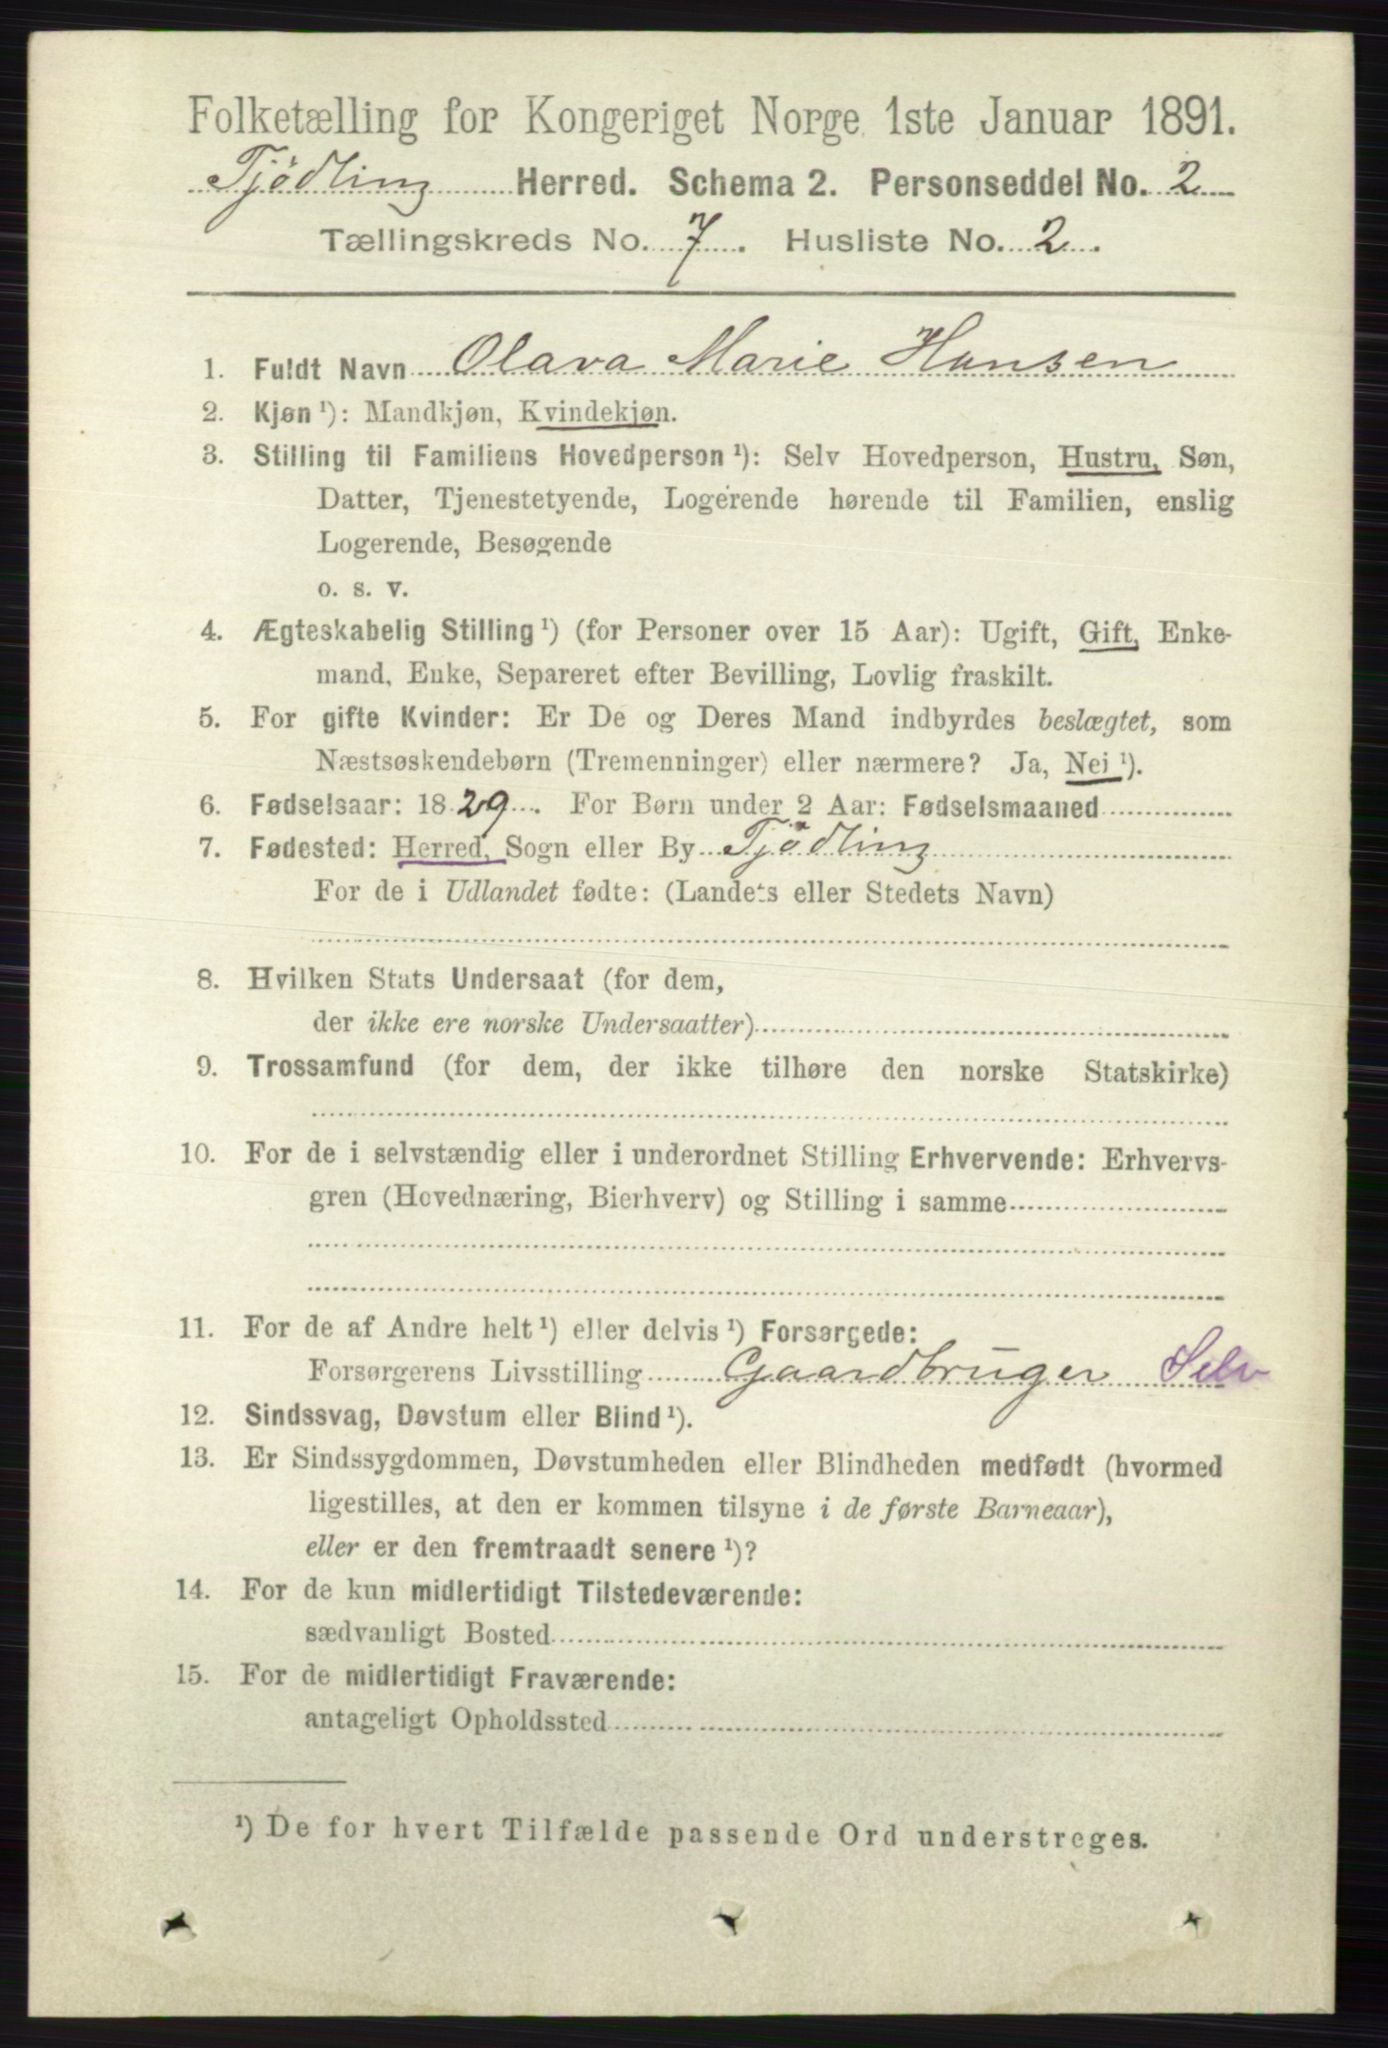 Folketælling for Kongeriget Norge 1ste Januar 1891.
Tjödling Herred. Schema 2. Personseddel No. 2
Tællingskreds No. 7. Husliste No. 2.
1. Fuldt Navn Olava Marie Hansen
2. Kjøn ¹): Mandkjøn, Kvindekjøn.
3. Stilling til Familiens Hovedperson ¹): Selv Hovedperson, Hustru, Søn,
Datter, Tjenestetyende, Logerende hørende til Familien, enslig
Logerende, Besøgende
o. s. v.
4. Ægteskabelig Stilling ¹) (for Personer over 15 Aar): Ugift, Gift, Enke-
mand, Enke, Separeret efter Bevilling, Lovlig fraskilt.
5. For gifte Kvinder: Er De og Deres Mand indbyrdes beslægtet, som
Næstsøskendebørn (Tremenninger) eller nærmere? Ja, Nei ¹).
6. Fødselsaar: 1829. For Børn under 2 Aar: Fødselsmaaned
7. Fødested: Herred, Sogn eller By Tjödling
For de i Udlandet fødte: (Landets eller Stedets Navn)
8. Hvilken Stats Undersaat (for dem,
der ikke ere norske Undersaatter)
9. Trossamfund (for dem, der ikke tilhøre den norske Statskirke)
10. For de i selvstændig eller i underordnet Stilling Erhvervende: Erhvervs-
gren (Hovednæring, Bierhverv) og Stilling i samme
11. For de af Andre helt ¹) eller delvis ¹) Forsørgede:
Forsørgerens Livsstilling Gaardbruger Selv
12. Sindssvag, Døvstum eller Blind ¹).
13. Er Sindssygdommen, Døvstumheden eller Blindheden medfødt (hvormed
ligestilles, at den er kommen tilsyne i de første Barneaar),
eller er den fremtraadt senere ¹)?
14. For de kun midlertidigt Tilstedeværende:
sædvanligt Bosted
15. For de midlertidigt Fraværende:
antageligt Opholdssted
¹) De for hvert Tilfælde passende Ord understreges.